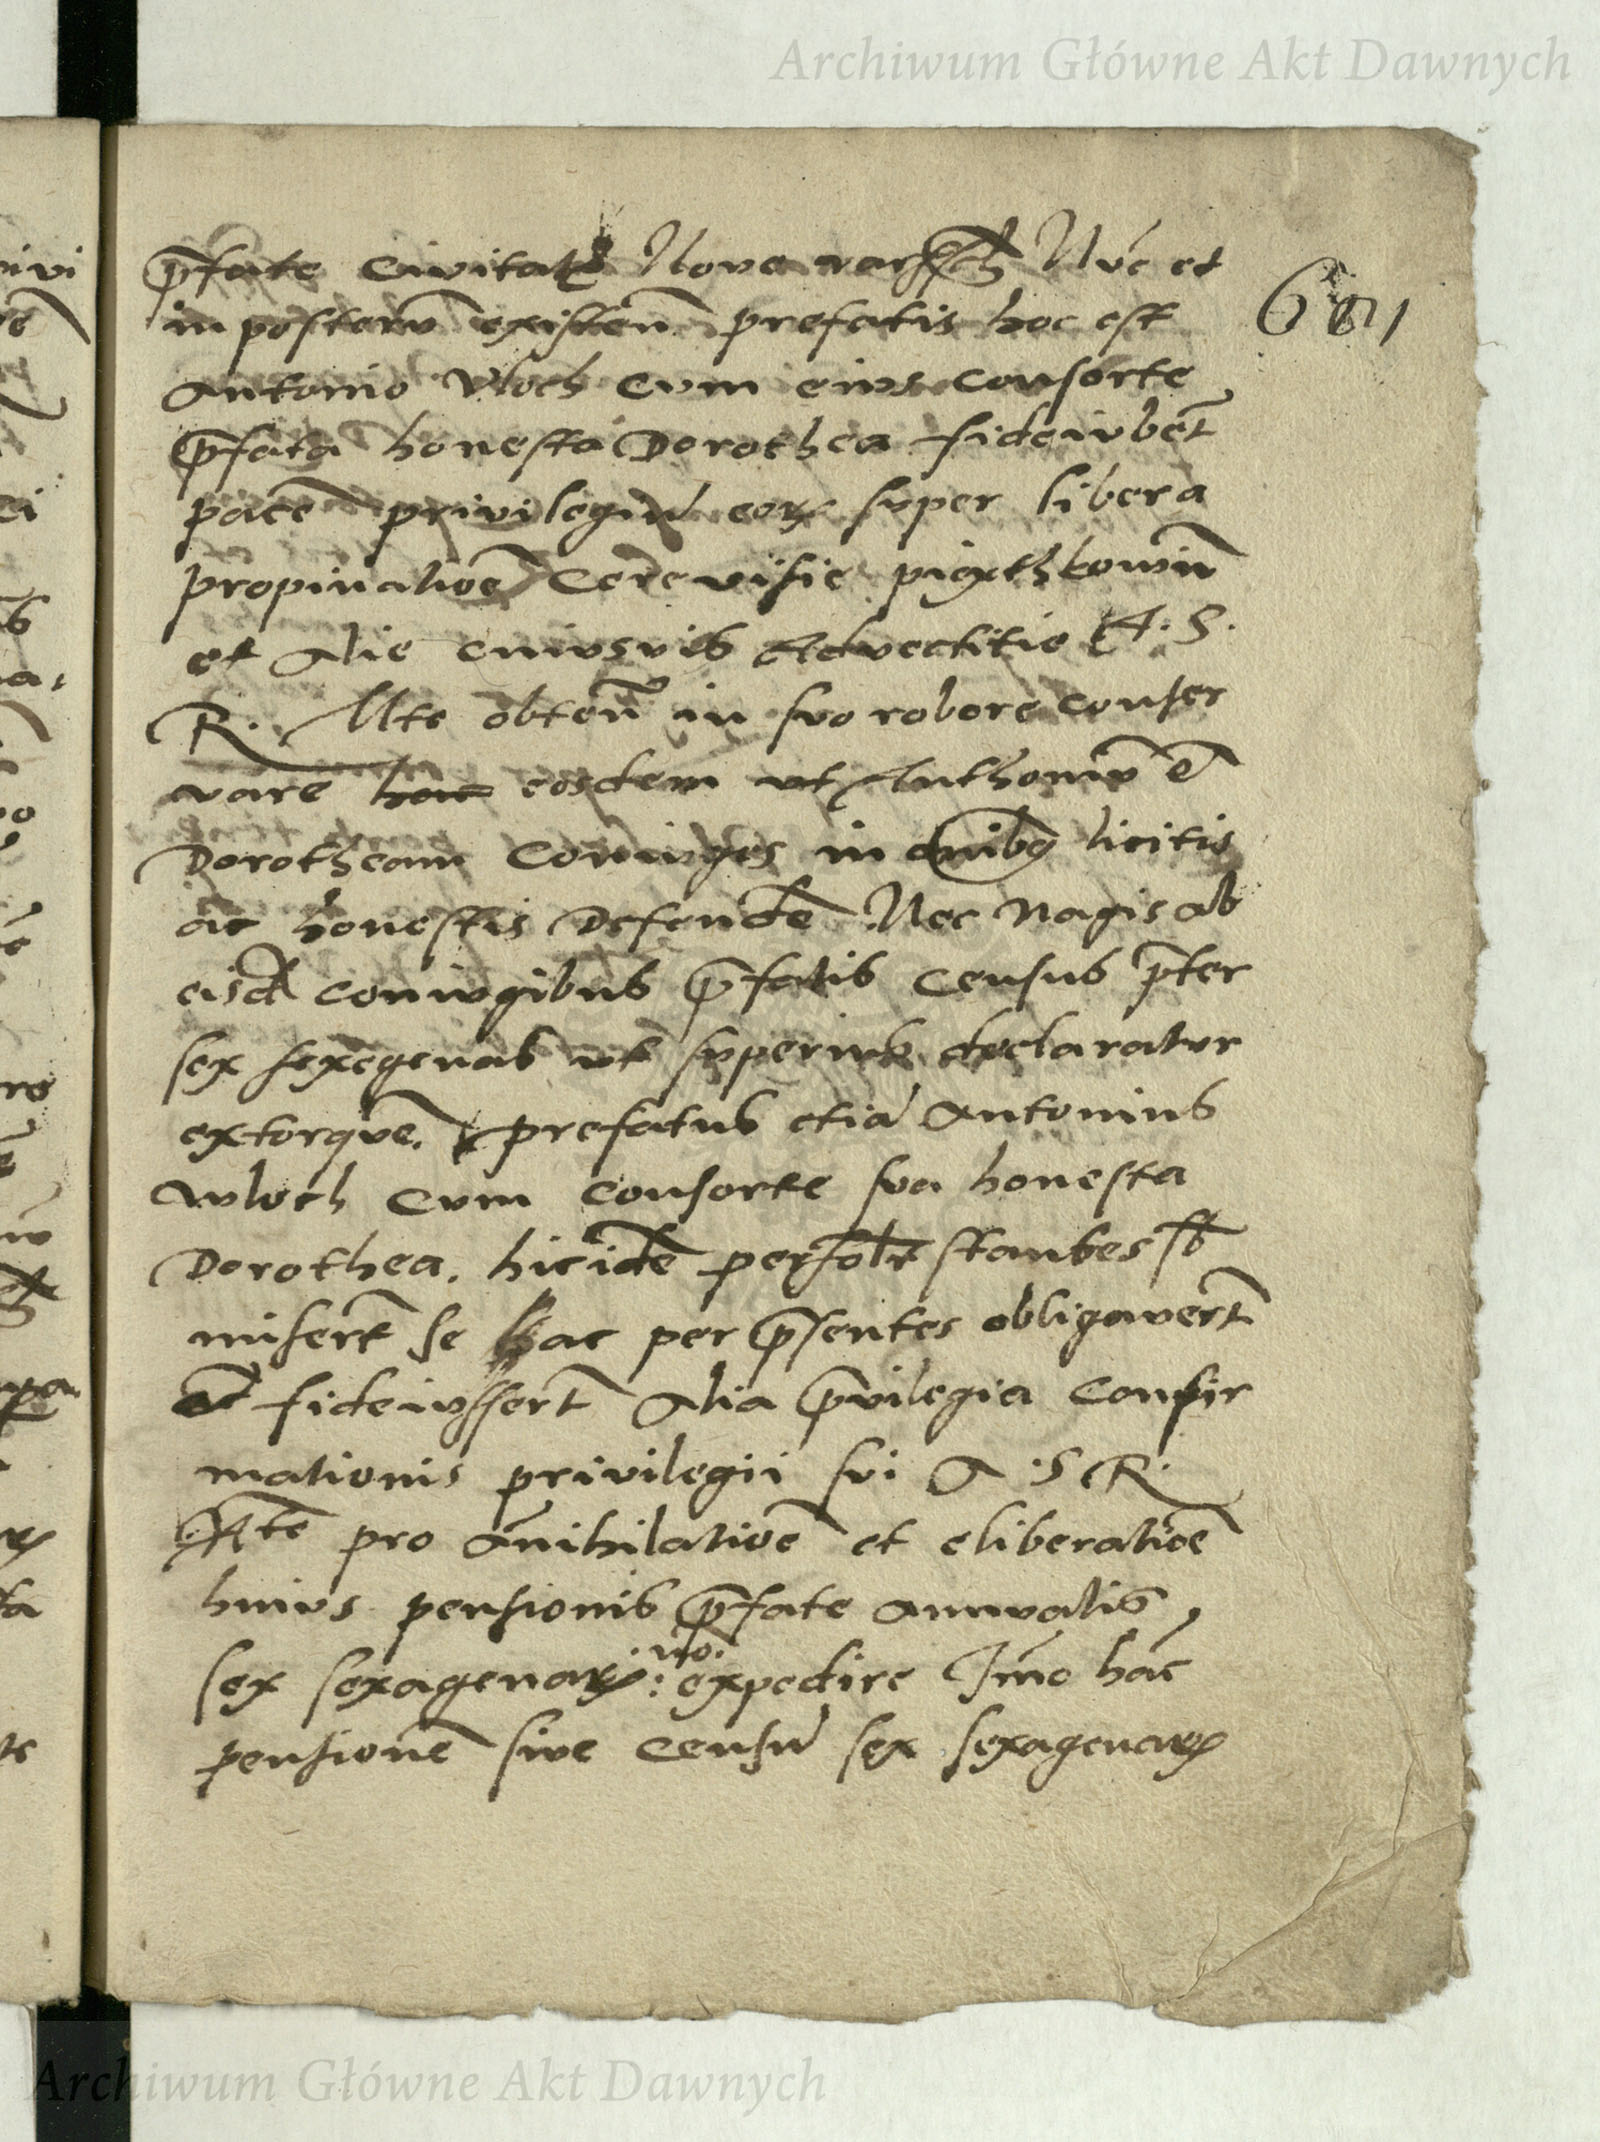 Archiwum Główne Akt Dawnych
p̄fate Civitatis Nova Nu̅c et
in posteru̅ existen̅ prefatis hoc est
681
Antonio Vloch cum eius Consorte
p̄fata honesta Dorothea fideiube̅t
pace̅ privilegiu̅ eoꝝ super libera
propinatioe̅ Cerevisie piąthkowin̅
et Alie cuiusvis Advectitie A. S.
R. Mte obten̅ in suo robore conser
vare eosdem ut Anthoniu̅ e̅
Dorotheam Coniuges in o̅nibꝫ licitis
ac honestis Defende̅ Nec Magis ab
eisd̅ coniugibus p̄fatis Census p̅ter
sex sexegenas ut superius declaratur
extorque̅. prefatus etia̅ Antonius
Wloch Cum Consorte sua honesta
Dorothea. hicide̅ perso̅lr stantes sb̅
misert̅ se hac per p̄sentes obligavert̅
et fideiussert̅ Alia p̄vilegia Confir
mationis privilegii sui A. S R.
Mte̅ pro An̅ihilatioe̅ et eliberatioe̅
huius pensionis p̄fate Annualis,
sex sexagenaꝝ: no̅. expedire Im̅o ha̅c
pensione̅ sive Censu̅ sex sexagenaꝝ
Archiwum Główne Akt Dawnych